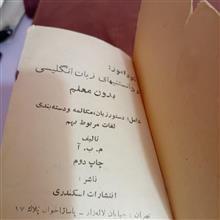 خود آموز:
دانستنیهای زبان انگلیسی
بدون معلم
شامل: دستور زبان، مکالمه و دسته‌بندی
لغات مربوط بهم
تالیف
م. ب. آ
چاپ دوم
ناشر:
انتشارات اسکندری
تهران: خیابان لاله‌زار - پاساژ اخوان پلاک ۱۷